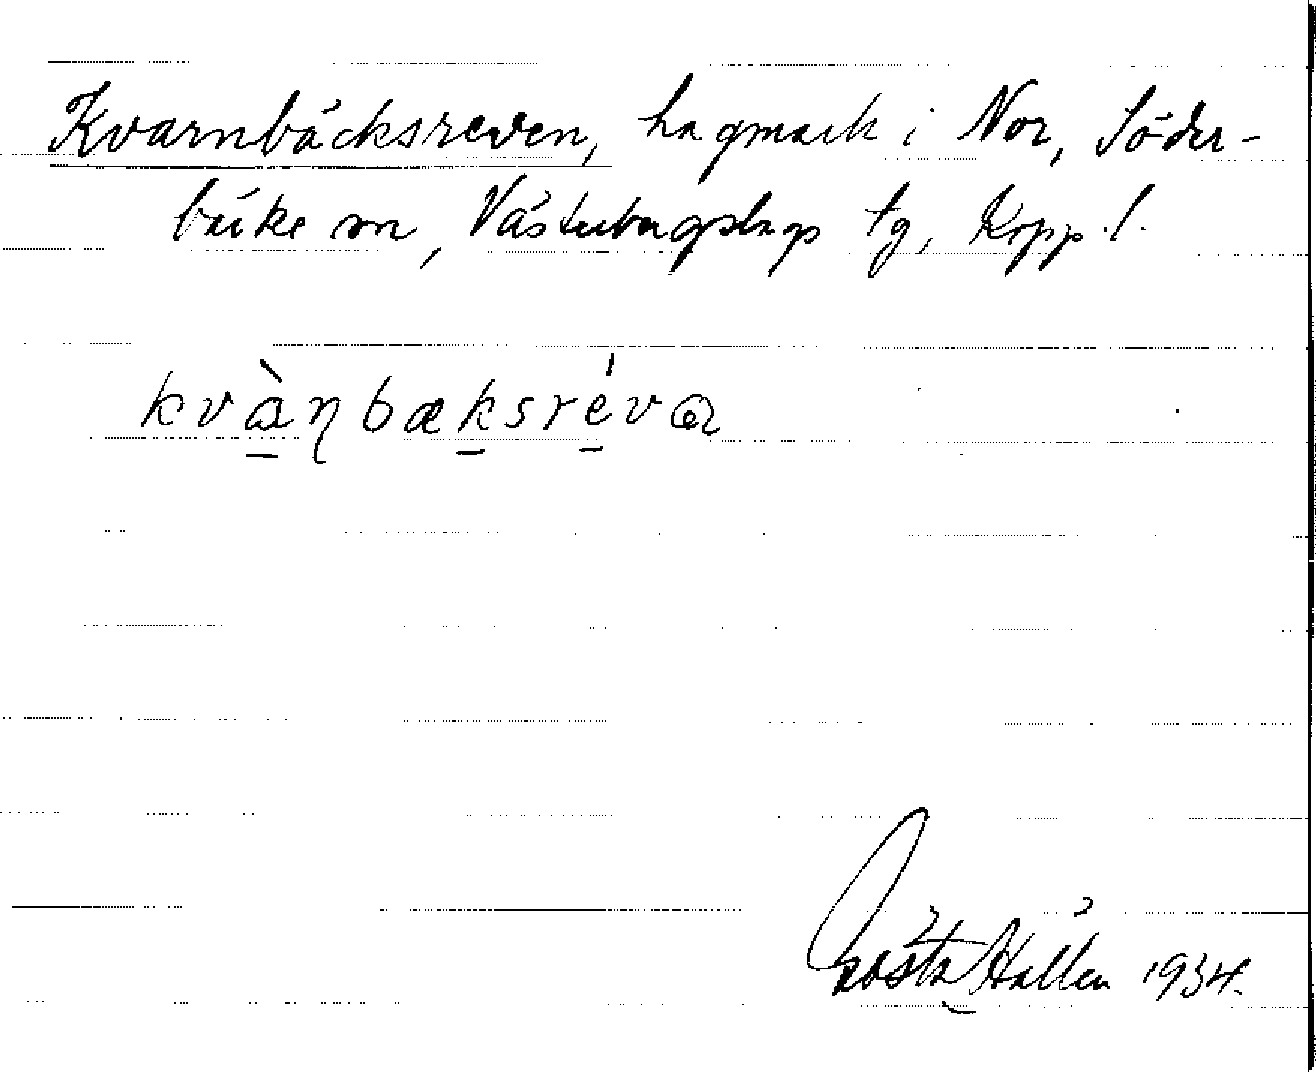 Kvarnbäcksreven, hagmark i Nor, Söder-
bärke sn, Västerbergslags tg, Kopp. l.
kvànbæksréva
Gösta Hallén 1934.